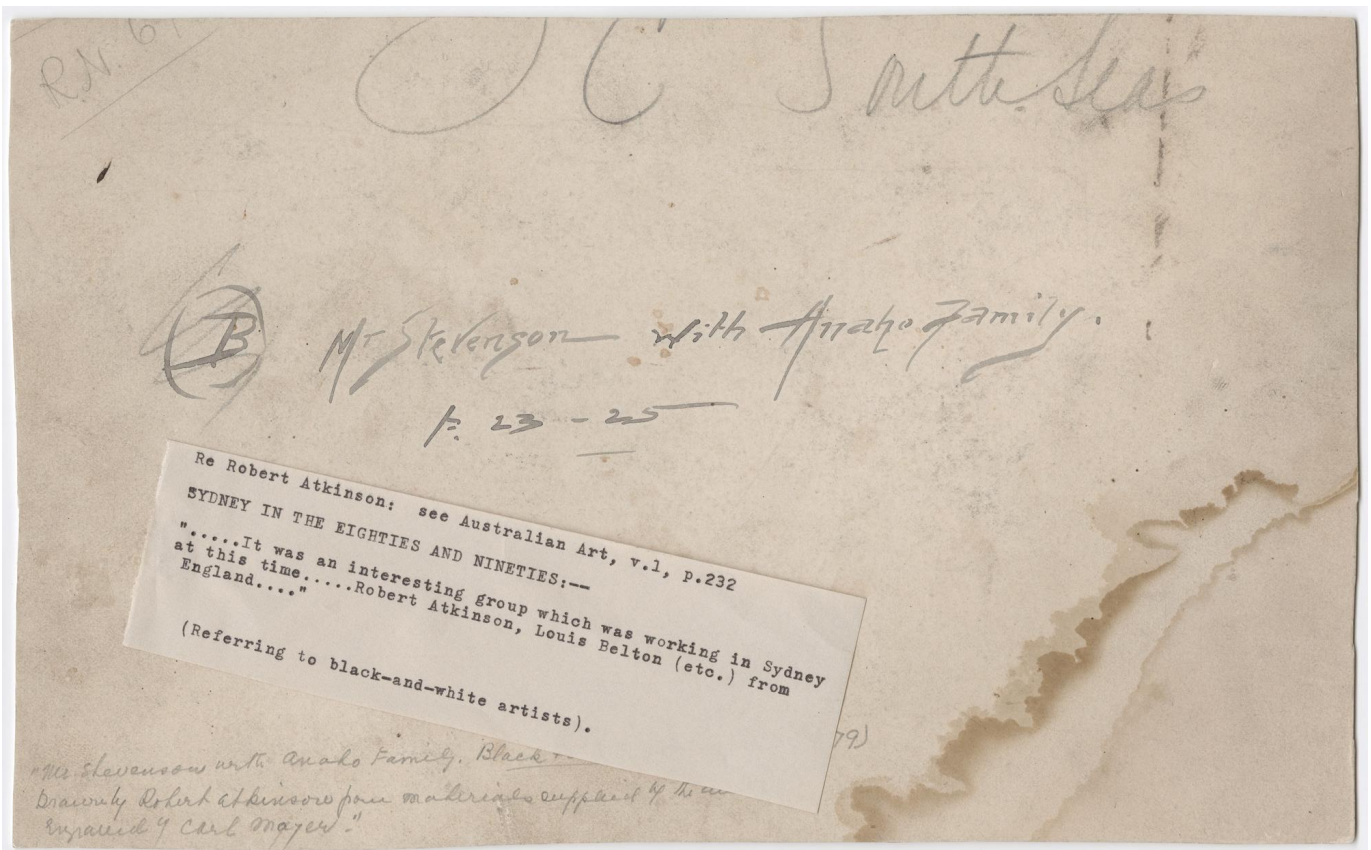 R.N. 6
South Seas
B Mr Stevenson with Anaho Family.
p. 23 - 25
Re Robert Atkinson: see Australian Art, v.1, p.232
SYDNEY IN THE EIGHTIES AND NINETIES:--
".....It was an interesting group which was working in Sydney
at this time.....Robert Atkinson, Louis Belton (etc.) from
England...."
(Referring to black-and-white artists).
79)
"Mr. Stevenson with Anaho Family. Black
Drawn by Robert Atkinson from materials supplied by the
Engraved by Carl Mayer."